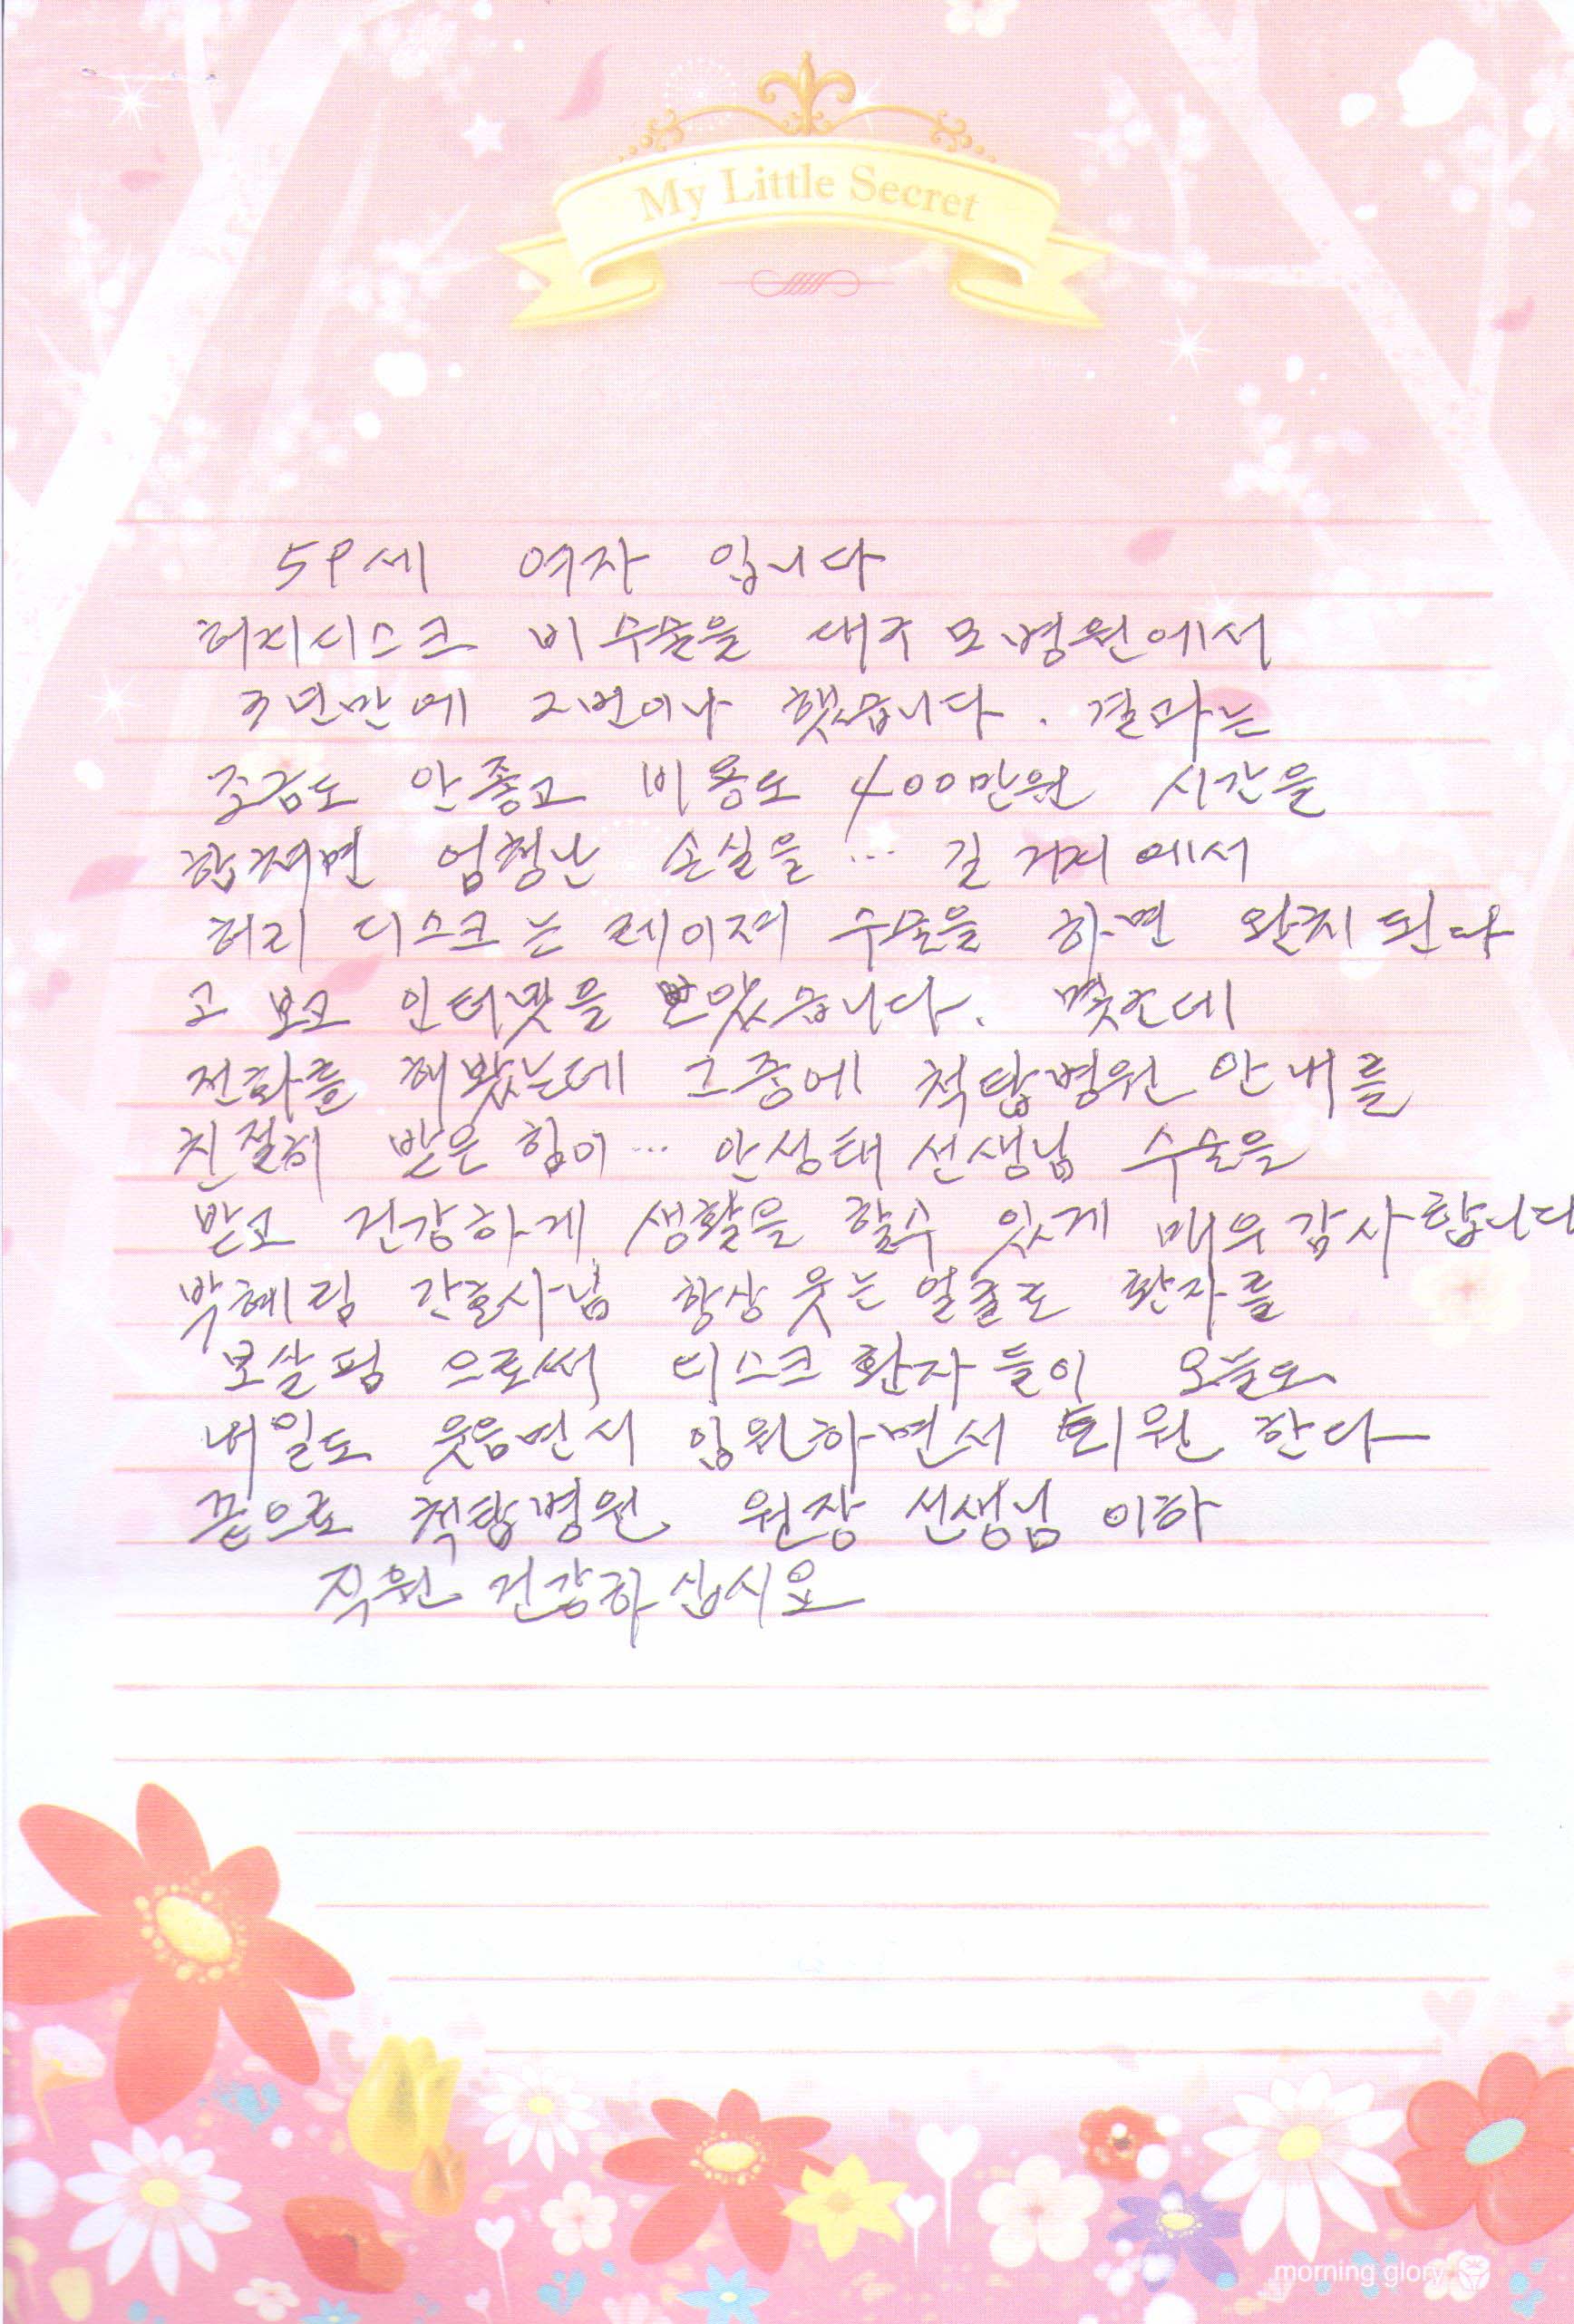 My Little Secret
59세 여자 입니다
허리디스크 비수술을 대구 모병원에서
3년만에 2번이나 했습니다. 결과는
조금도 안좋고 비용도 400만원 시간을
합치면 엄청난 손실을 … 길 거리에서
허리 디스크는 레이져 수술을 하면 완치 된다
고 보고 인터넷을 보았습니다. 몇군데
전화를 해봤는데 그중에 척탑병원 안내를
친절히 받은 힘이 … 안성태 선생님 수술을
받고 건강하게 생활을 할수 있게 매우 감사 합니다
박혜림 간호사님 항상 웃는 얼굴로 환자를
보살핌 으로써 디스크 환자 들이 오늘도
내일도 웃음면서 입원하면서 퇴원 한다
끝으로 척탑병원 원장 선생님 이하
직원 건강하십시요
morning glory